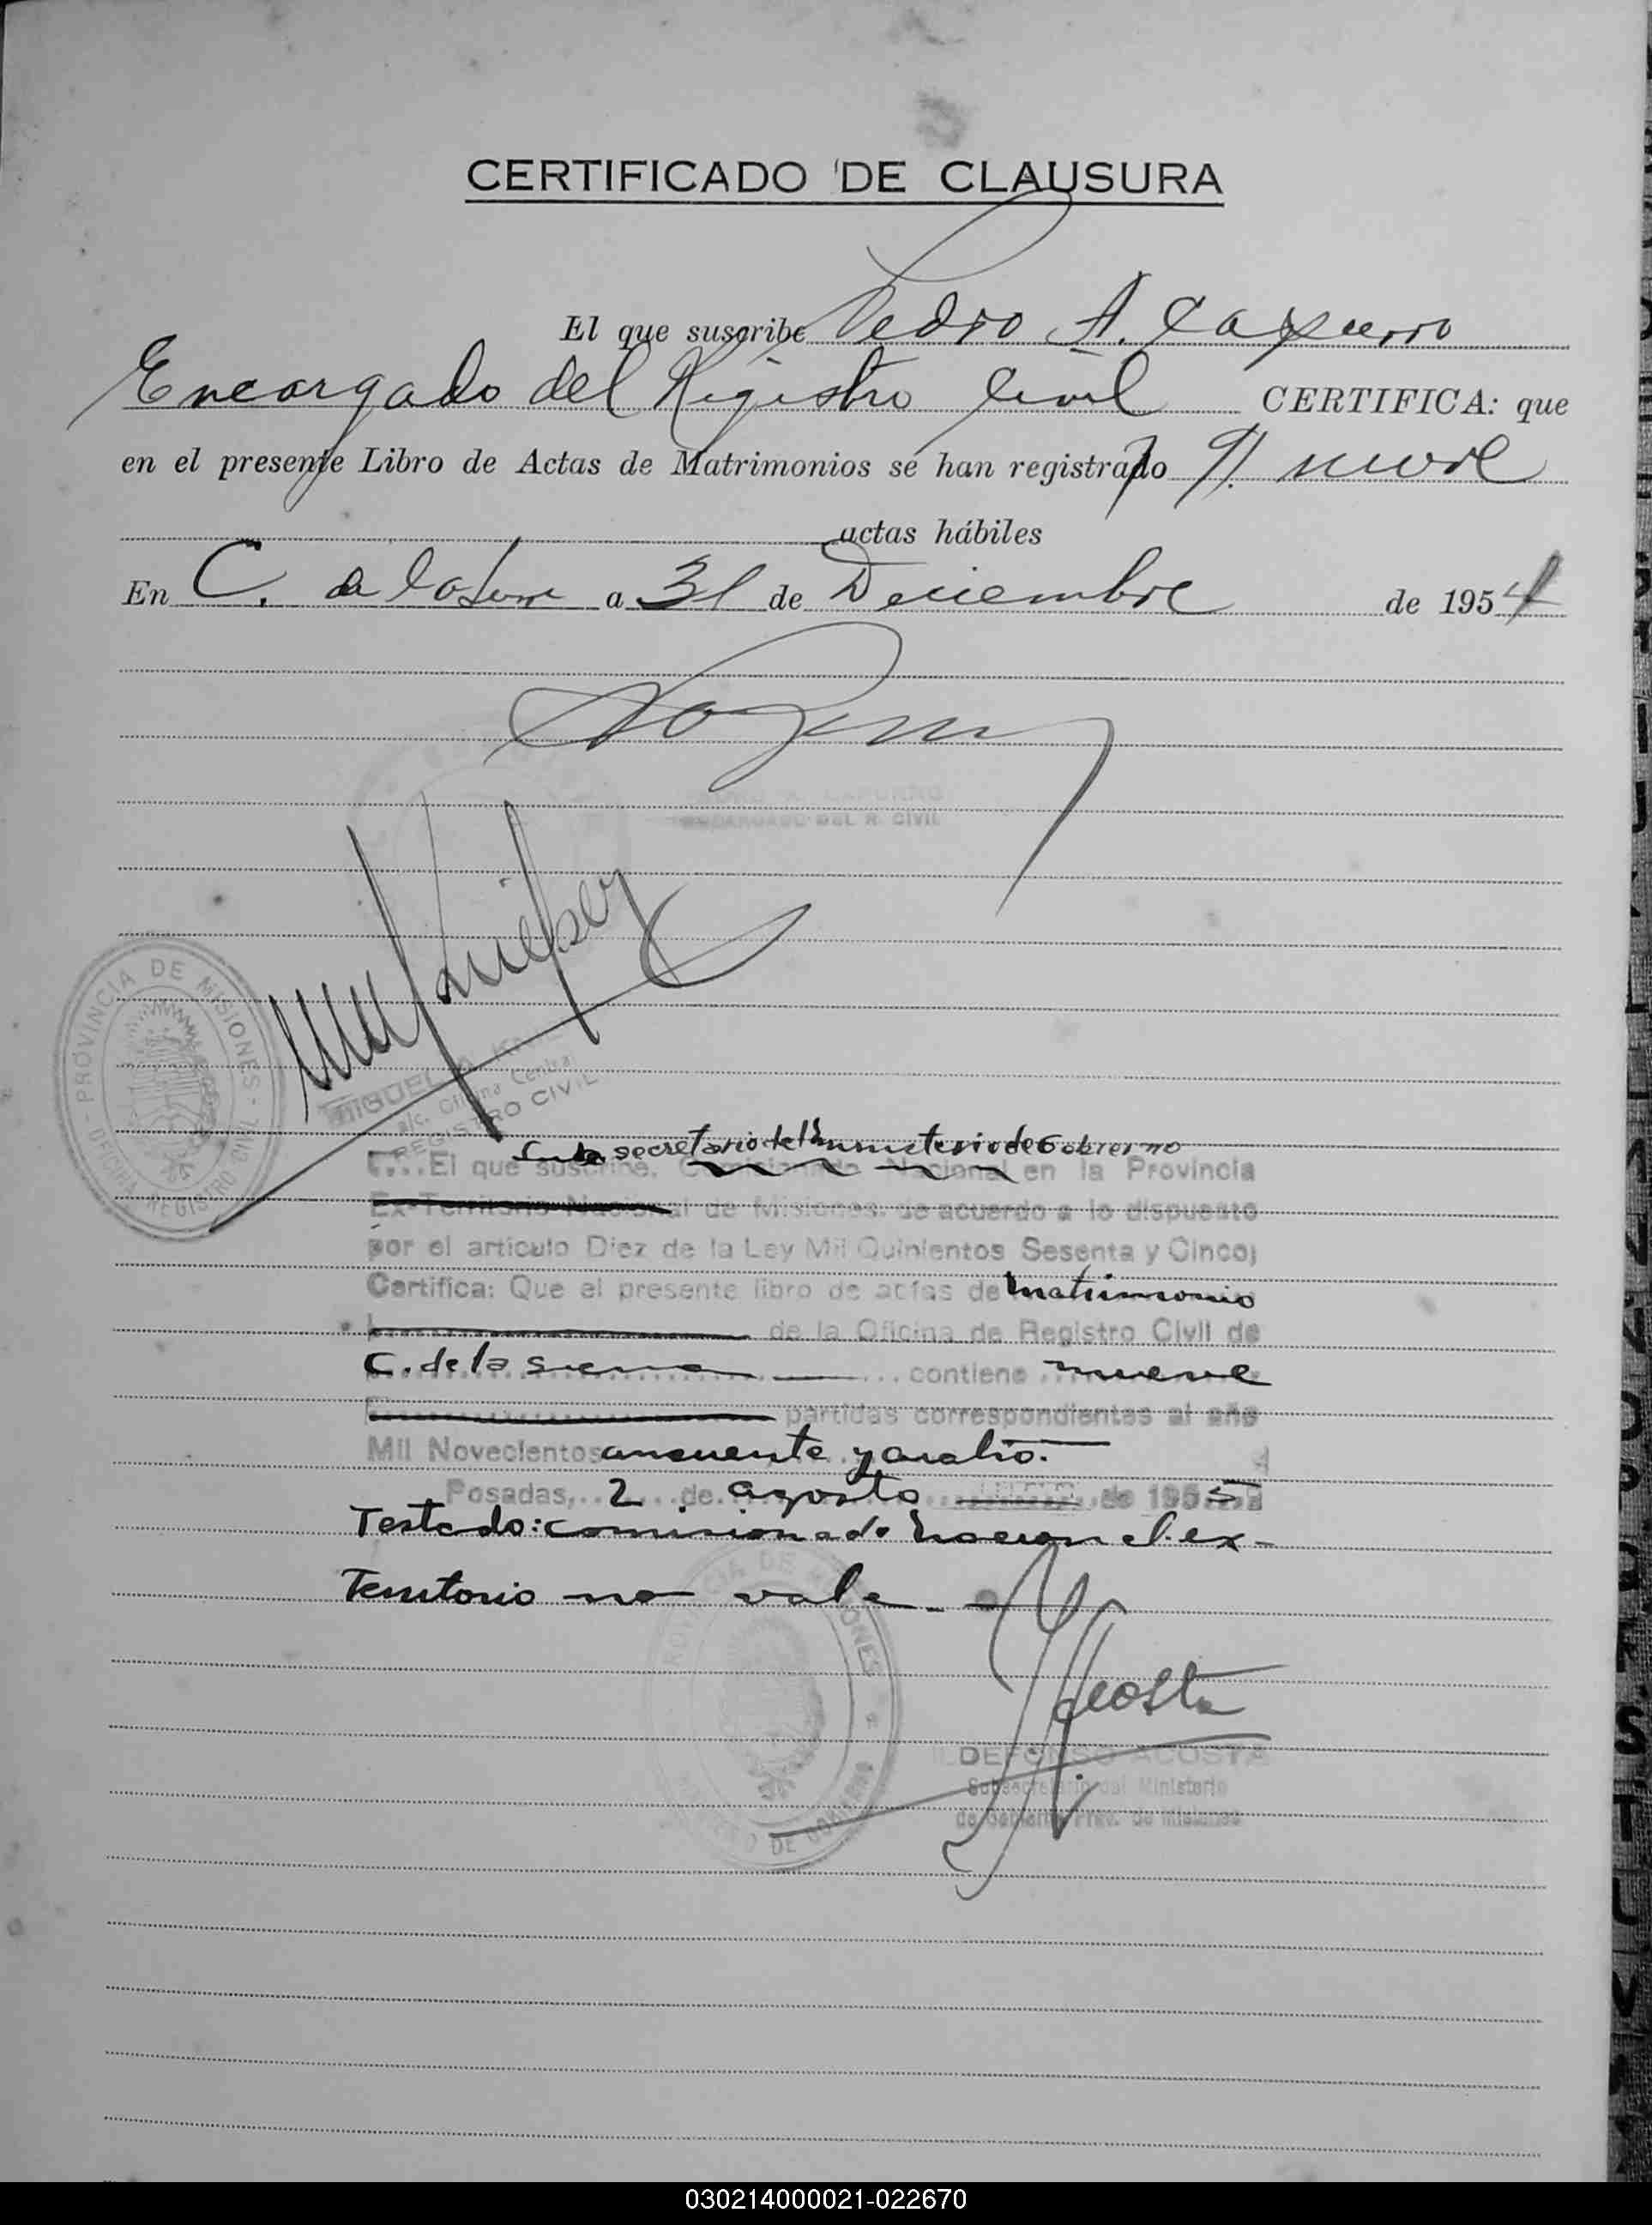 CERTIFICADO DE CLAUSURA
El que suscribe Pedro A. Capurro
Encargado del Registro Civil CERTIFICA: que
en el presente Libro de Actas de Matrimonios se han registrado 9/. nueve
actas hábiles
En C. de la Sierra a 31 de Diciembre de 1954
CAPURRO
ENCARGADO DEL R. CIVIL
PROVINCIA DE MISIONES
OFICINA REGISTRO CIVIL
MIGUEL A.
a/c. Oficina Central
REGISTRO CIVIL
Subsecretario del Ministerio de Gobierno
El que suscribe, Comisionado Nacional en la Provincia
Ex-Territorio Nacional de Misiones, de acuerdo a lo dispuesto
por el artículo Diez de la Ley Mil Quinientos Sesenta y Cinco;
Certifica: Que el presente libro de actas de Matrimonio
de la Oficina de Registro Civil de
C. de la Sierra contiene nueve
partidas correspondientes al año
Mil Novecientos cincuenta y cuatro.
Posadas, 2 de agosto de 1955
Testado: comisionado Nacional. ex-
Territorio no vale.
Acosta
ILDEFONSO ACOSTA
Subsecretario del Ministerio
de Gobierno Prov. de Misiones
PROVINCIA DE MISIONES
DE GOBIERNO
030214000021-022670